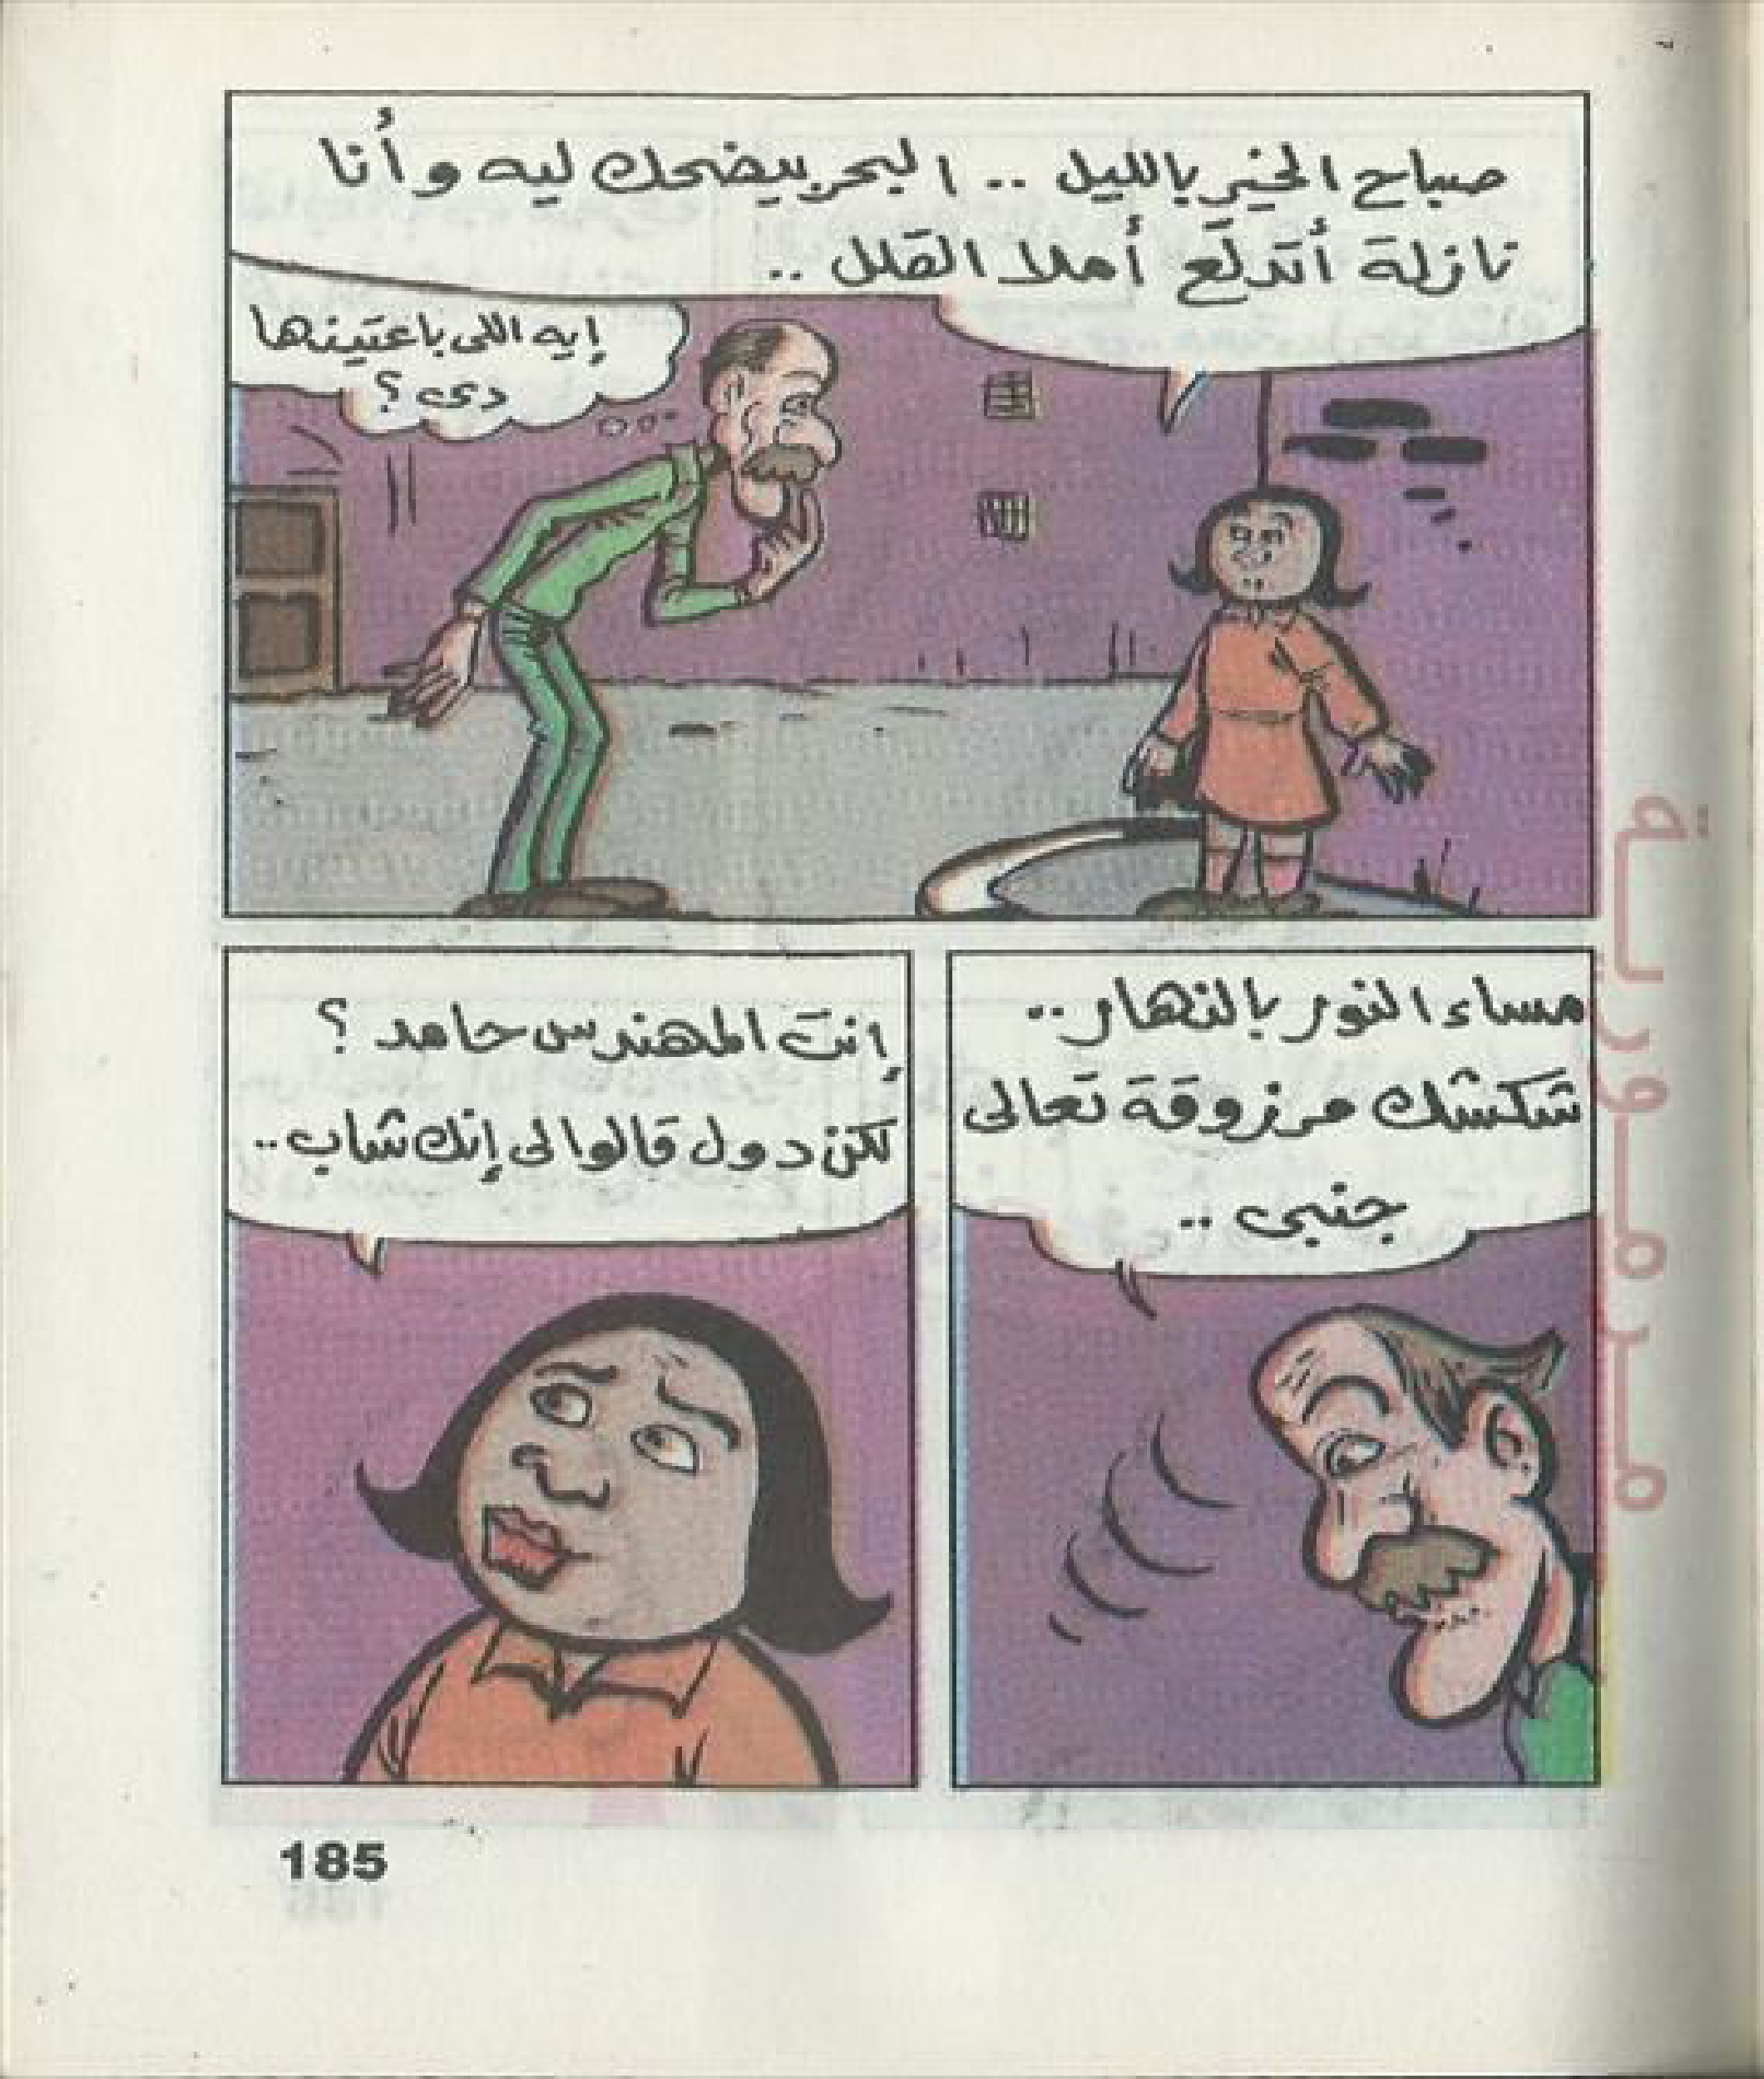 صباح الخير بالليل .. البحر بيضحك ليه وأنا
نازلة أتدلَّع أملا القلل ..
إيه اللى باعتينها
دى ؟
مساء النور بالنهار ..
شكشك مرزوقة تعالى
جنبى ..
إنتَ المهندس حامد ؟
لكن دول قالوا لى إنك شاب ..
مدموورتة
185